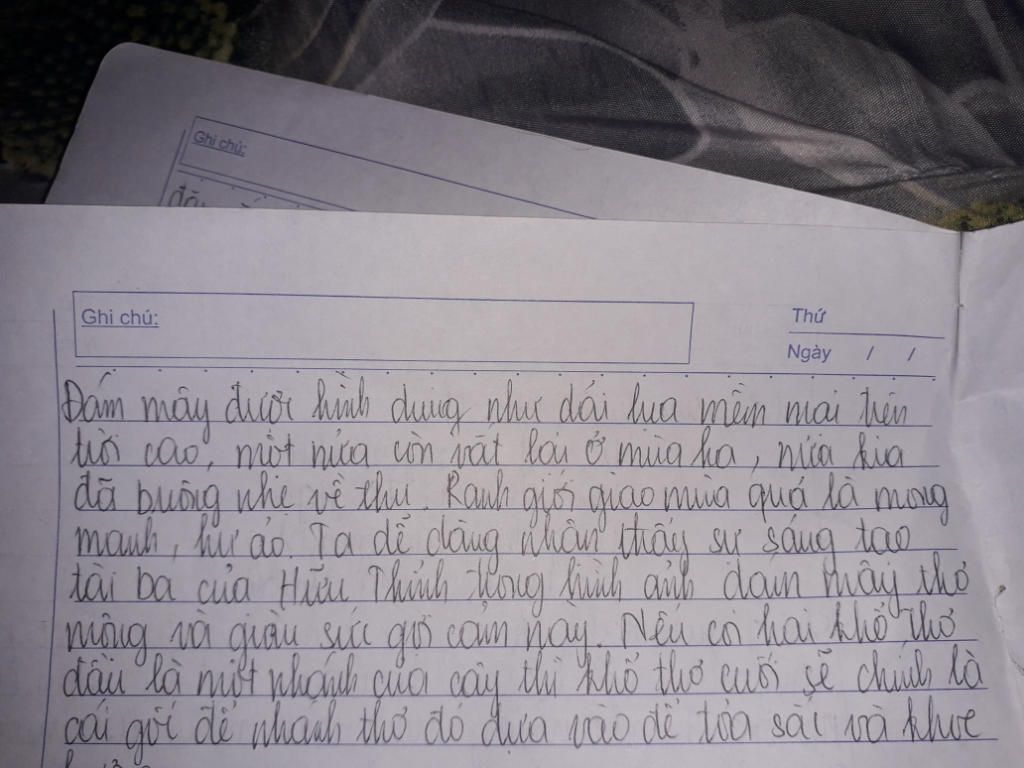 Ghi chú:
đã
Ghi chú:
Thứ
Ngày / /
Đám mây được hình dung như dải lụa mềm mại trên
trời cao, một nửa còn vắt lại ở mùa hạ, nửa kia
đã buông nhẹ về thu. Ranh giới giao mùa quả là mong
manh, hư ảo. Ta dễ dàng nhận thấy sự sáng tạo
tài ba của Hữu Thỉnh trong hình ảnh đám mây thơ
mộng và giàu sức gợi cảm này. Nếu coi hai khổ thơ
đầu là một nhánh của cây thì khổ thơ cuối sẽ chính là
cái gốc để nhánh thơ đó dựa vào để tỏa sắc và khoe